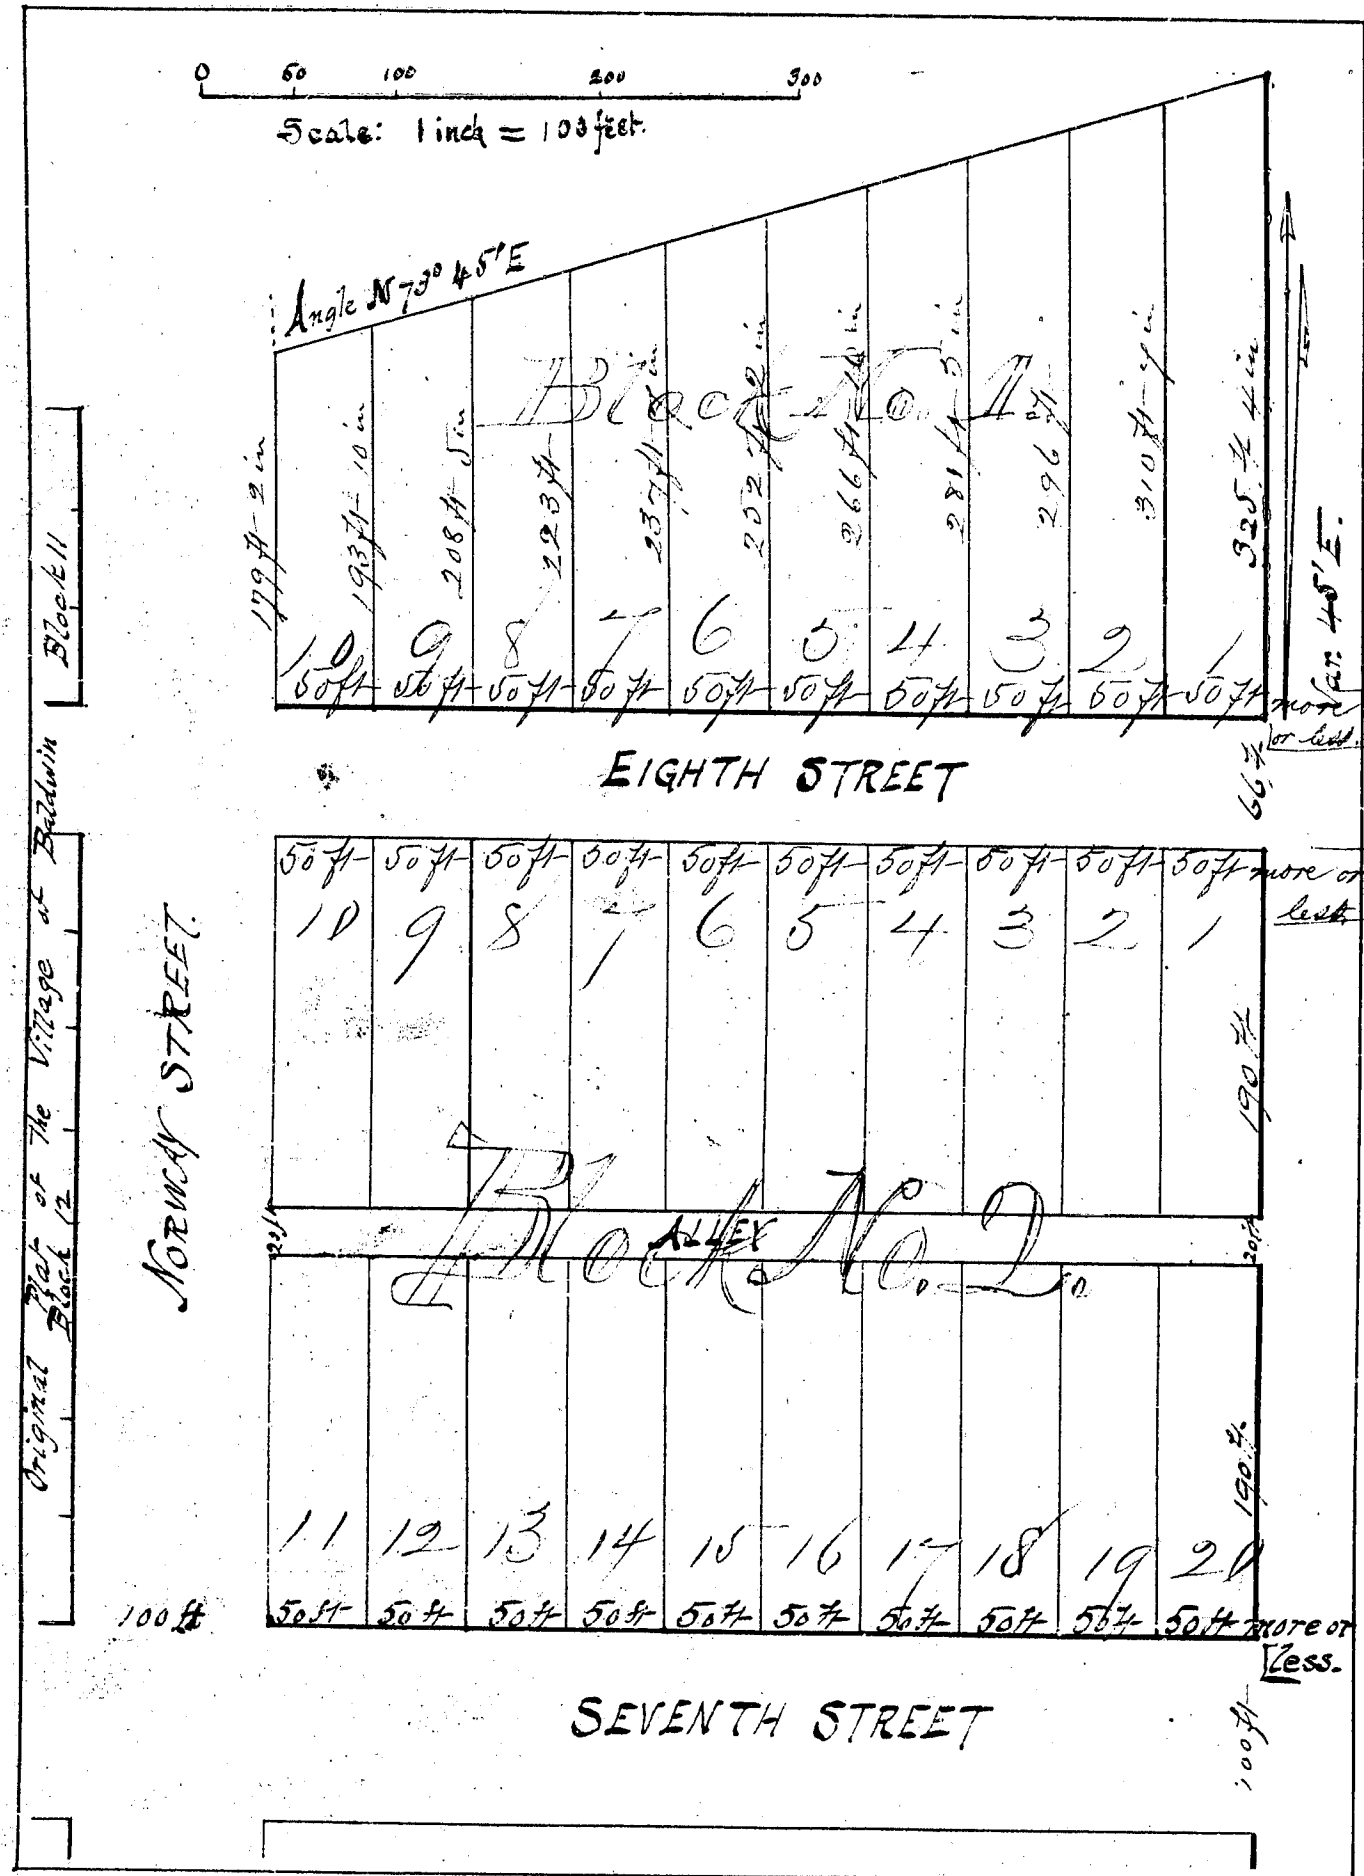 0 50 100 200 300
Scale: 1 inch = 100 feet.
Angle N 73° 45' E
Block No. 1.
179 ft 2 in
193 ft 10 in
208 ft 5 in
223 ft
237 ft in
252 ft 2 in
266 ft in
281 ft 5 in
296 ft
310 ft in
325 ft 4 in
10 9 8 7 6 5 4 3 2 1
50 ft 50 ft 50 ft 50 ft 50 ft 50 ft 50 ft 50 ft 50 ft 50 ft more
or less.
Var. 45' E.
EIGHTH STREET
66 ft
50 ft 50 ft 50 ft 50 ft 50 ft 50 ft 50 ft 50 ft 50 ft 50 ft more or
less
10 9 8 7 6 5 4 3 2 1
190 ft
Block No. 2.
20 ft
ALLEY
20 ft
190 ft
11 12 13 14 15 16 17 18 19 20
100 ft
50 ft 50 ft 50 ft 50 ft 50 ft 50 ft 50 ft 50 ft 50 ft 50 ft more or
less.
SEVENTH STREET
100 ft
NORWAY STREET.
Original Plat of The Village of Baldwin
Block 11
Block 12